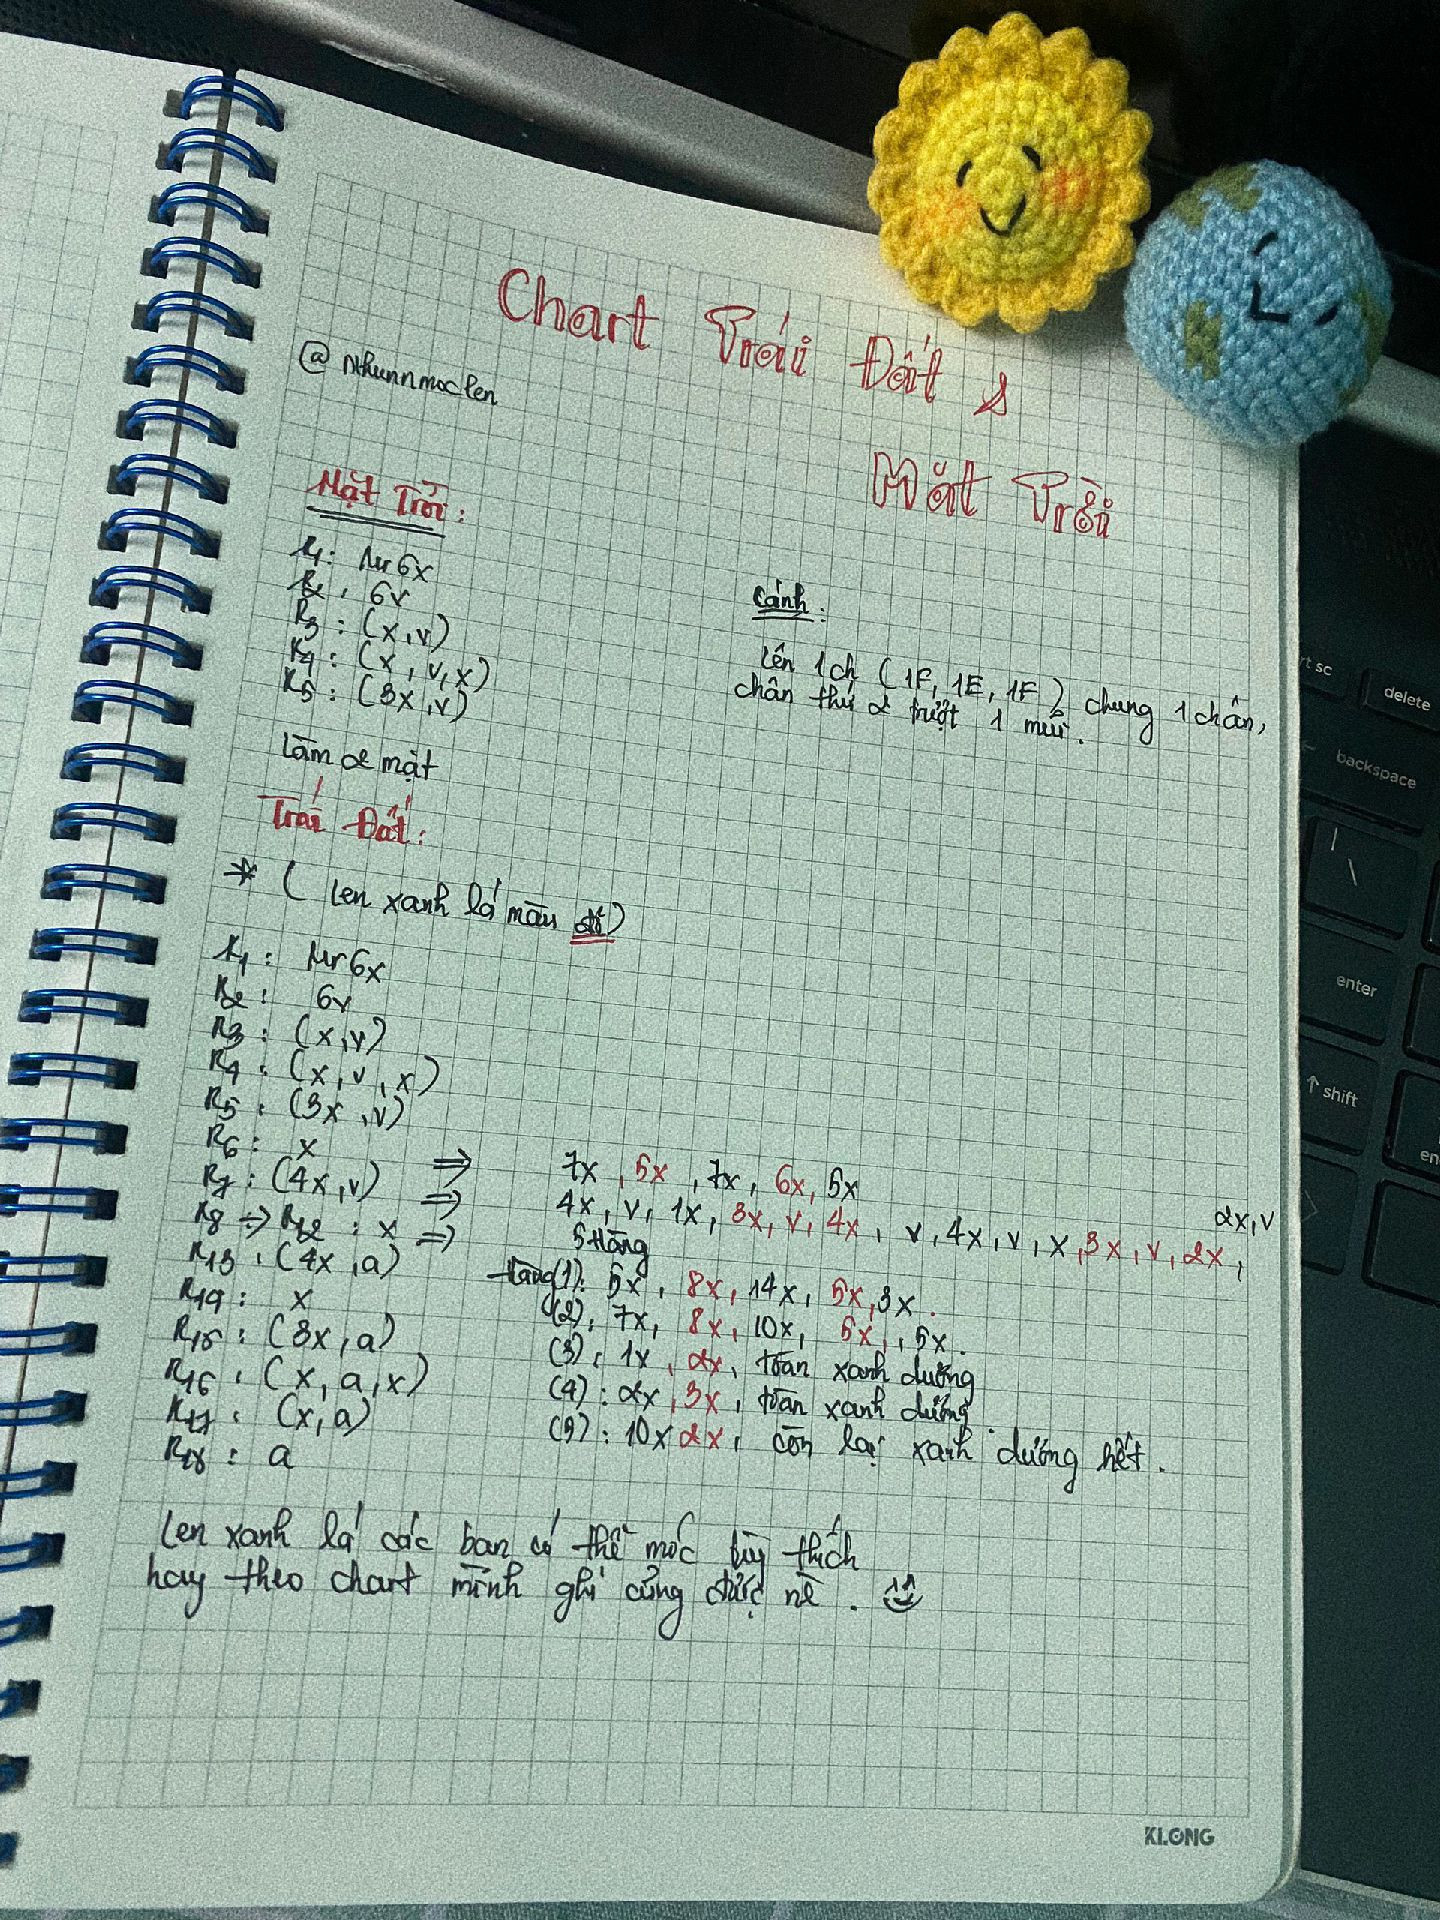 Chart Trái Đất &
Mặt Trời
@nhunnmoclen
Mặt Trời:
R1: Mr 6x
R2: 6v
R3: (x,v)
R4: (x, v, x)
R5: (3x, v)
Làm 2 mặt
Cánh:
Lên 1ch (1F, 1E, 1F) chung 1 chân,
chân thứ 2 trượt 1 mũi.
Trái Đất:
* (Len xanh lá màu đỏ)
R1: Mr 6x
R2: 6v
R3: (x,v)
R4: (x, v, x)
R5: (3x, v)
R6: x ⇒ 7x, 5x, 7x, 6x, 5x
R7: (4x, v) ⇒ 4x, v, 1x, 3x, v, 4x, v, 4x, v, x, 3x, v, 2x, 2x, v
R8 → R12: x ⇒ 5 Hàng
R13: (4x, a) Hàng (1): 5x, 8x, 14x, 5x, 3x.
R14: x (2), 7x, 8x, 10x, 5x, 5x.
R15: (3x, a) (3): 1x, 2x, toàn xanh dương
R16: (x, a, x) (4): 2x, 3x, toàn xanh dương
R17: (x, a) (5): 10x 2x, còn lại xanh dương hết.
R18: a
Len xanh lá các bạn có thể móc tùy thích
hay theo chart mình ghi cũng được nè.
rt sc
delete
backspace
enter
shift
KLONG